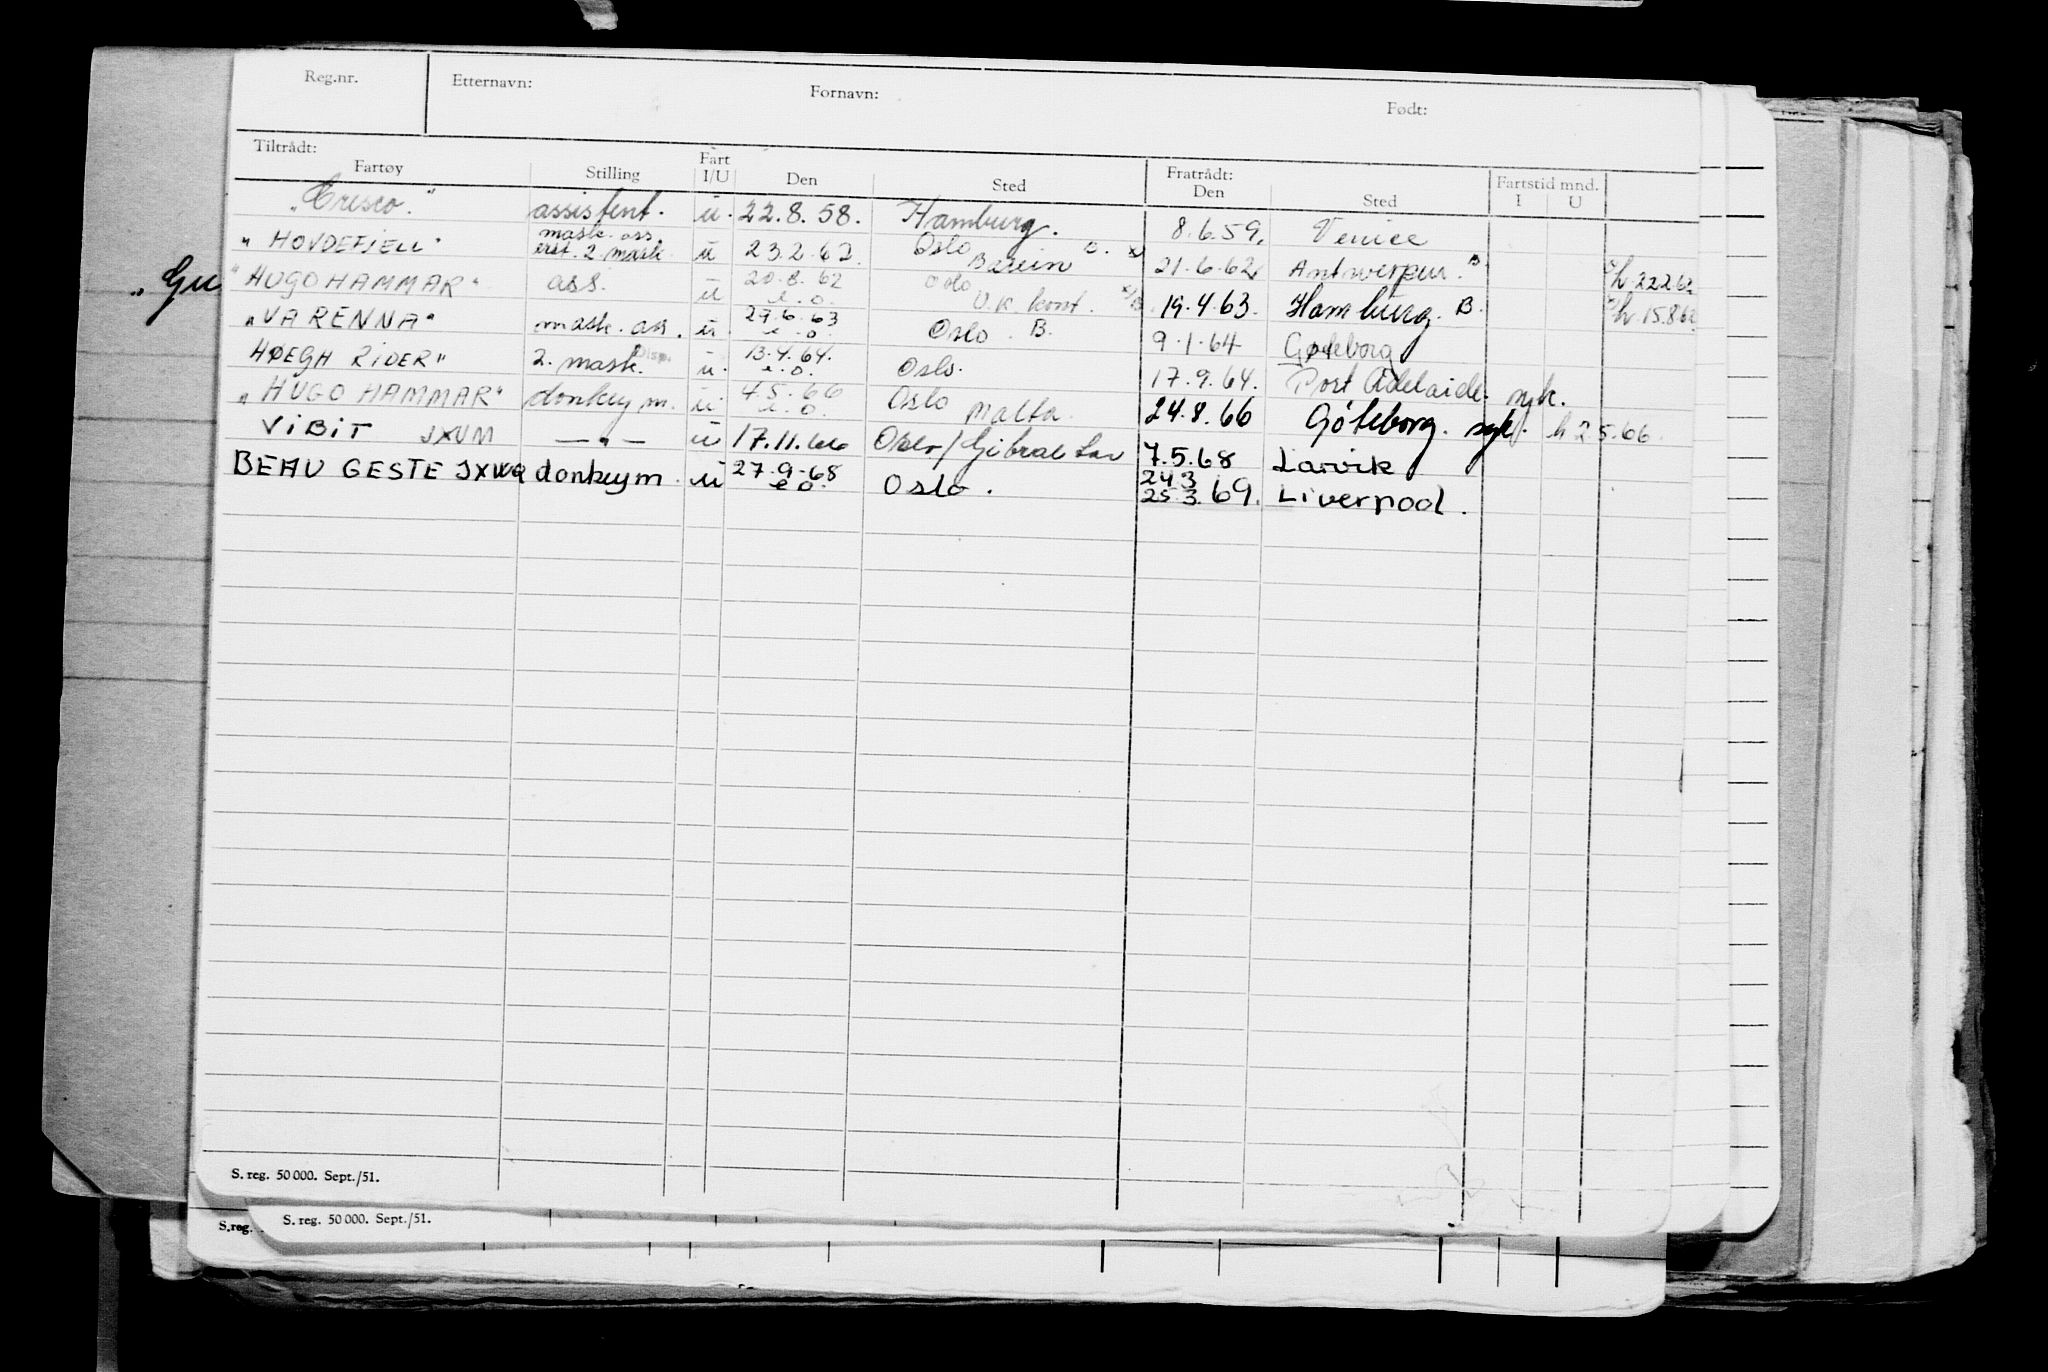 Reg.nr. Etternavn: Fornavn: Født:
Tiltrådt: Fart Fratrådt: Fartstid mnd.
Fartøy Stilling I/U Den Sted Den Sted I U
„Crisco." assistent. u. 22.8.58. Hamburg. 8.6.59. Venice
mask. ass
„HOVDEFJELL" erst. 2 mask. u 23.2.62. Oslo Barein 21.6.62 Antwerpen. B h 22.2.62
„Gu
"HUGO HAMMAR" ass. u 20.8.62 e.o. Oslo U.K. kont. 19.4.63. Hamburg. B. h 15.8.62
„VARENNA" mask. ass. u. 29.6.63 e.o. Oslo. B. 9.1.64 Gøteborg
HØEGH RIDER" 2. mask. Disp. u. 13.4.64. e.o. Oslo. 17.9.64. Port Adelaide. syk.
„HUGO HAMMAR" donkeym. u 4.5.66 e.o. Oslo Malta. 24.8.66 Göteborg. syk. h 2.5.66.
VIBIT JXUM — „ — u 17.11.66 Oslo/Gibraltar 7.5.68 Larvik
BEAU GESTE JXWQ donkeym. u 27.9.68 e.o. Oslo. 24.3 25.3.69. Liverpool.
S. reg. 50 000. Sept./51.
S.reg. S. reg. 50 000. Sept./51.